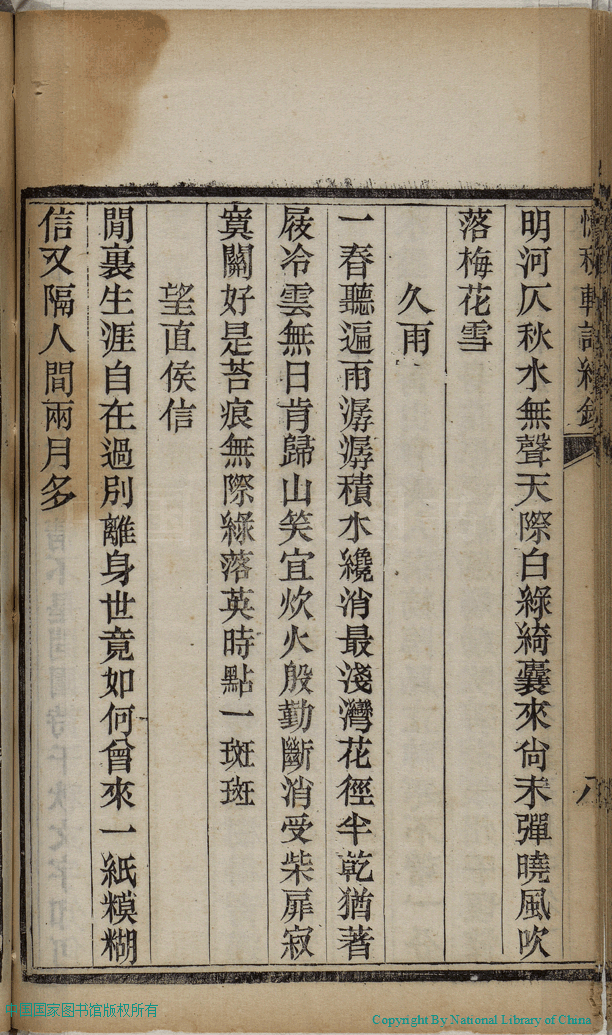 明河仄秋水無聲天際白綠綺囊來尙未彈曉風吹
落梅花雪
久雨
一春聽遍雨潺潺積水纔消最淺灣花徑半乾猶著
屐冷雲無日肯歸山笑宜炊火殷勤斷消受柴扉寂
寞關好是苔痕無際綠落英時點一斑斑
望直侯信
閒裏生涯自在過別離身世竟如何曾來一紙糢糊
信又隔人間兩月多
中国国家图书馆版权所有
Copyright By National Library of China